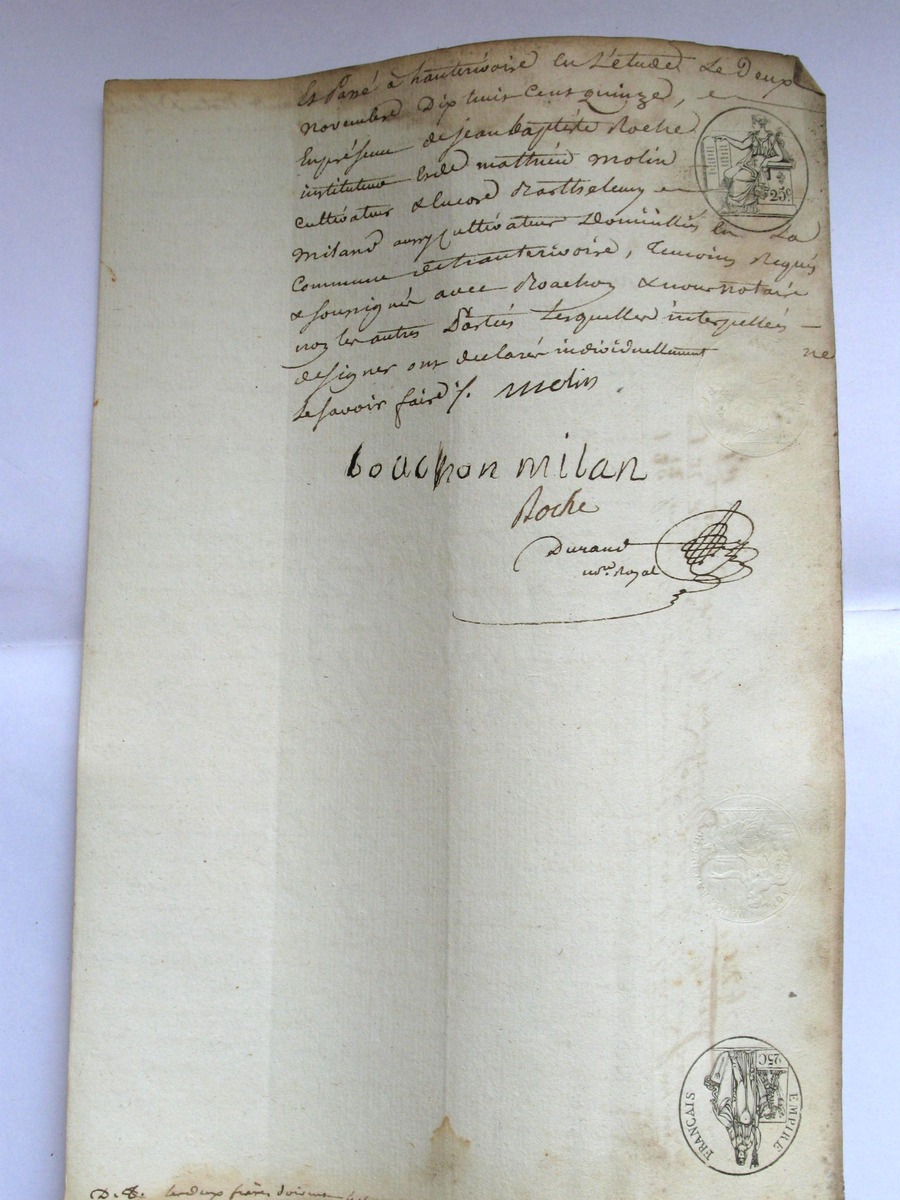 et Passé a hauterivoire en L'etude Le Deux
novembre Dix huit Cent quinze,
En présence de jean baptiste Roche
instituteur & de mathieu molin
cultivateur & encore Barthelemy
miland aussy Cultivateur Domiciliés en La
Commune de hauterivoire, temoins Requis
& soussignés avec Boachon & nous notaire
non les autres Parties Lesquelles interpellées
de signer ont declarés individuellement ne
Le savoir faire ./. molin
bouchon milan
Roche
Durand
no.re Royal
25c.
25C
EMPIRE FRANÇAIS
D. & les deux freres doivent